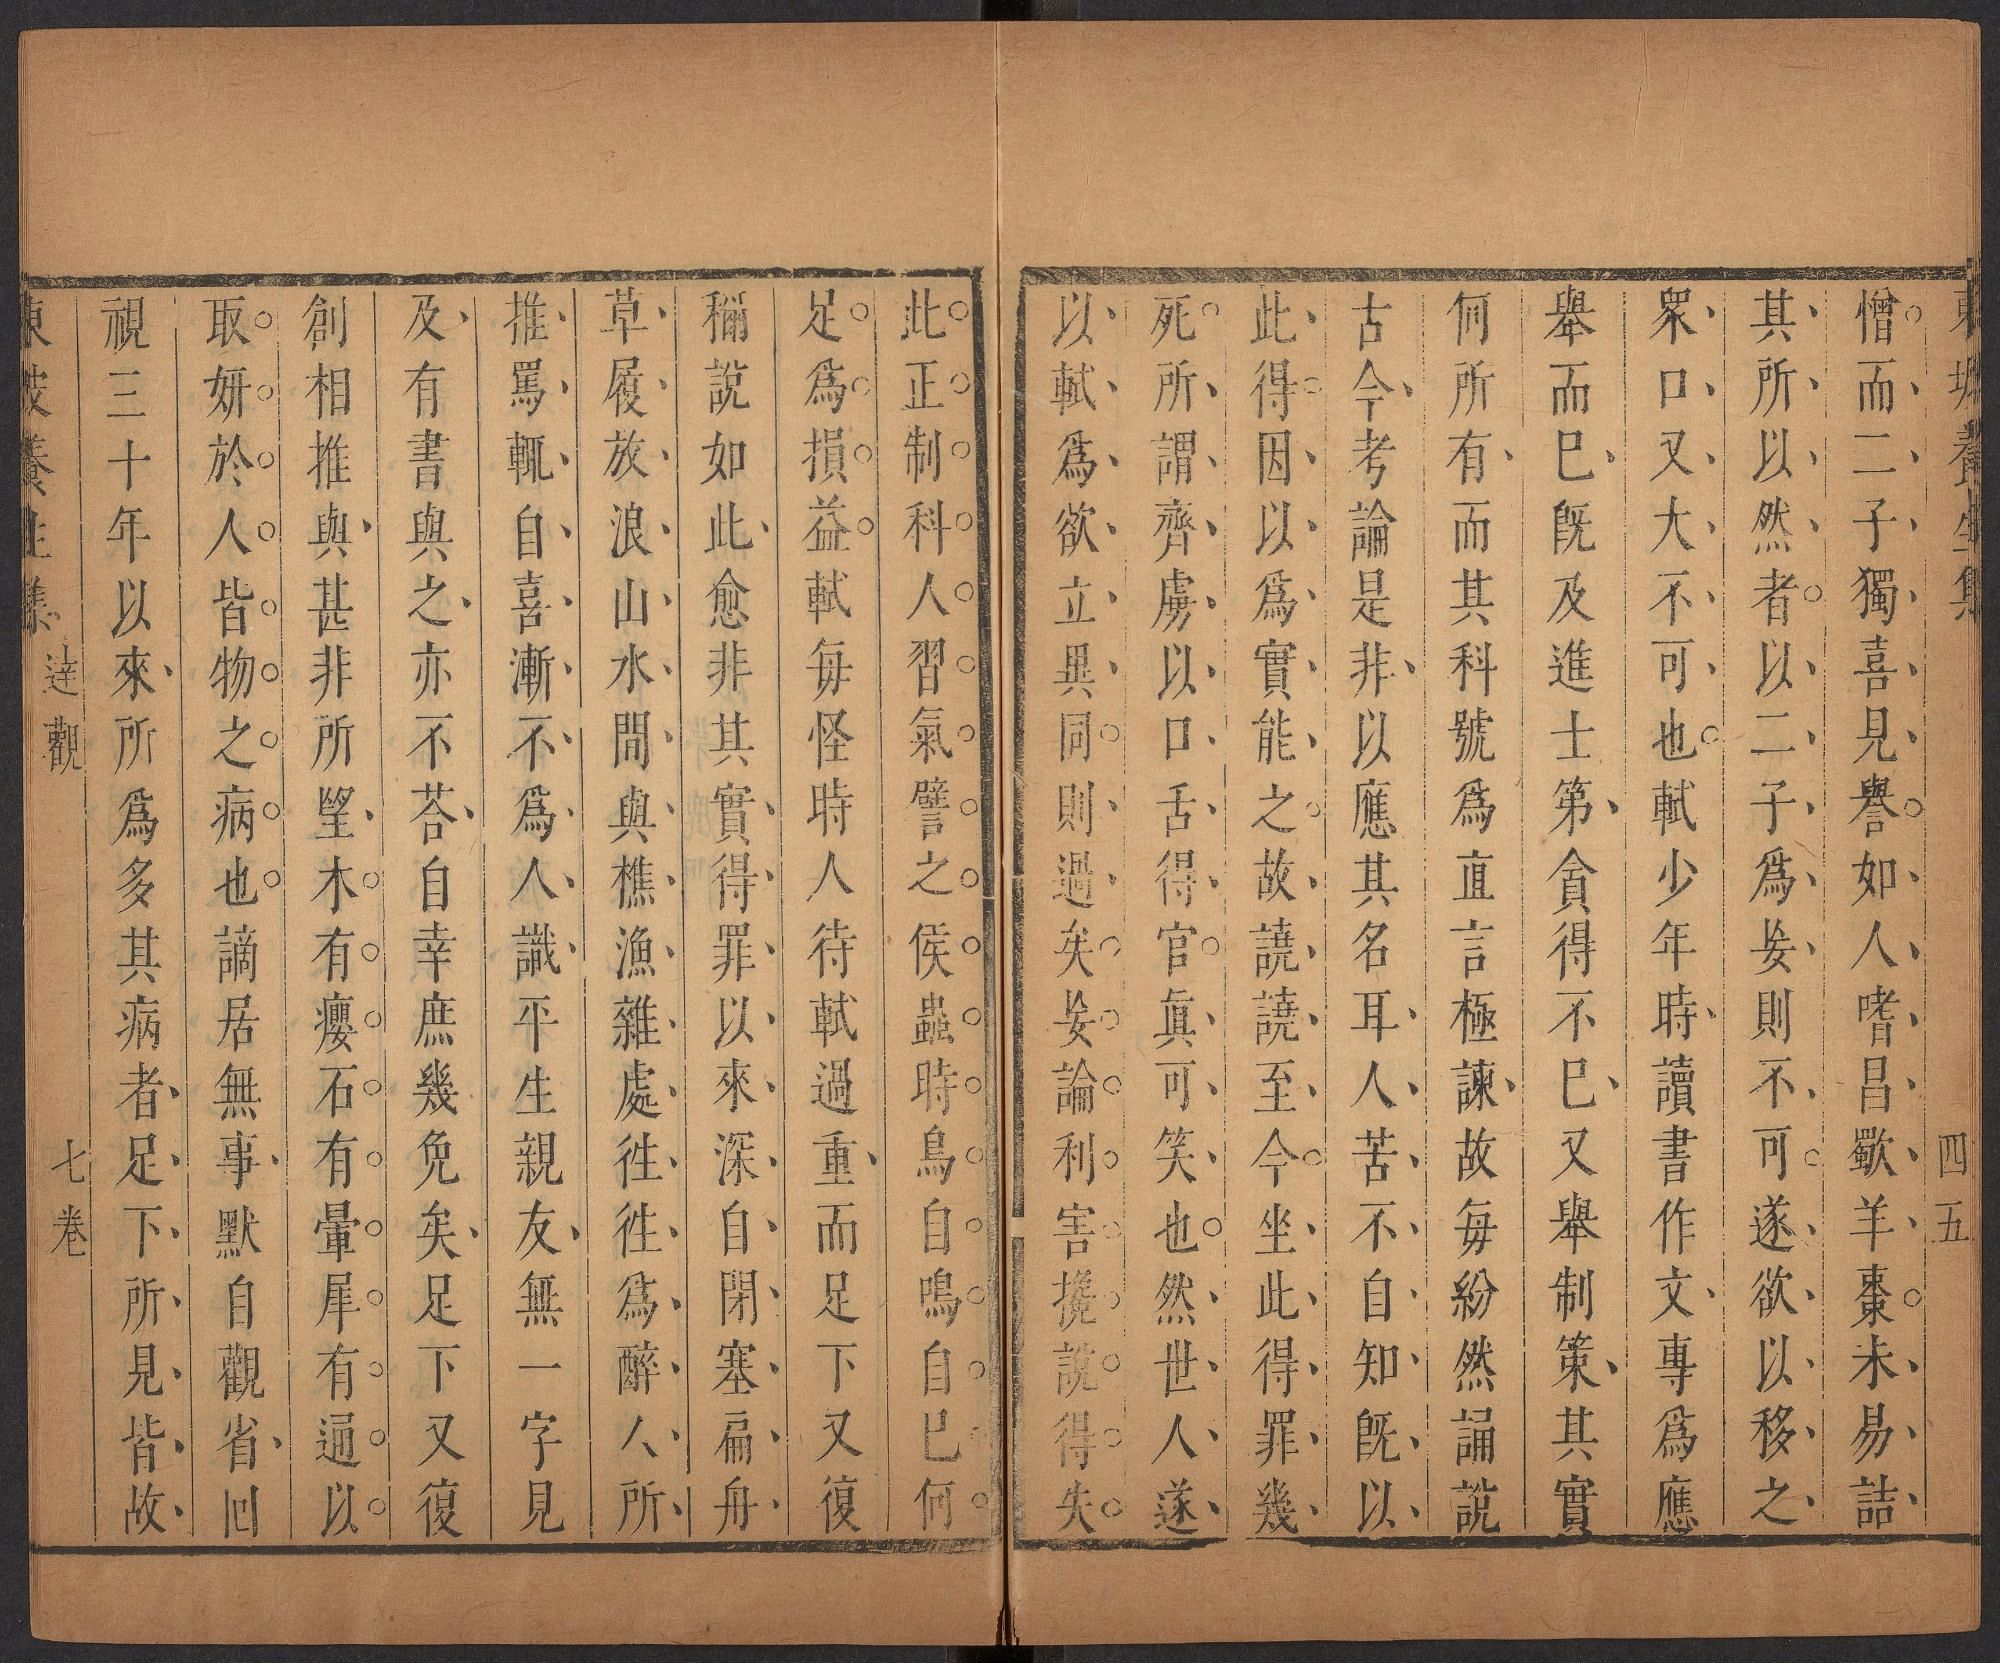 東坡養生集
四五
憎而二子獨喜見譽如人嗜昌歜羊棗未易詰
其所以然者以二子爲妄則不可遂欲以移之
衆口又大不可也軾少年時讀書作文專爲應
舉而巳旣及進士第貪得不巳又舉制策其實
何所有而其科號爲直言極諫故每紛然誦說
古今考論是非以應其名耳人苦不自知旣以
此得因以爲實能之故譊譊至今坐此得罪幾
死所謂齊虜以口舌得官眞可笑也然世人遂
以軾爲欲立異同則過矣妄論利害攙說得失
此正制科人習氣譬之候蟲時鳥自鳴自巳何
足爲損益軾每怪時人待軾過重而足下又復
稱說如此愈非其實得罪以來深自閉塞扁舟
草履放浪山水間與樵漁雜處徃徃爲醉人所
推罵輒自喜漸不爲人識平生親友無一字見
及有書與之亦不荅自幸庶幾免矣足下又復
創相推與甚非所望木有癭石有暈犀有通以
取妍於人皆物之病也謫居無事默自觀省回
視三十年以來所爲多其病者足下所見皆故
東坡養生集
達觀
七卷